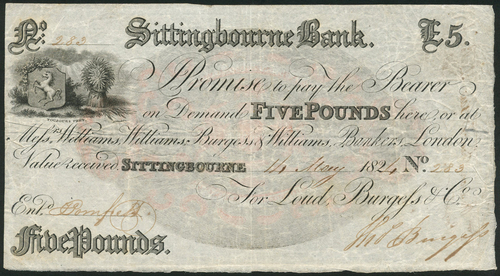 No. 283 Sittingbourne Bank. £5.
Promise to pay the Bearer
on Demand FIVE POUNDS here or at
Messrs Williams, Williams, Burgess & Williams, Bankers, London
Value received SITTINGBOURNE 14 May 1824 No. 283
For Loud, Burgess & Co.
Entd.
Five Pounds. Burgess